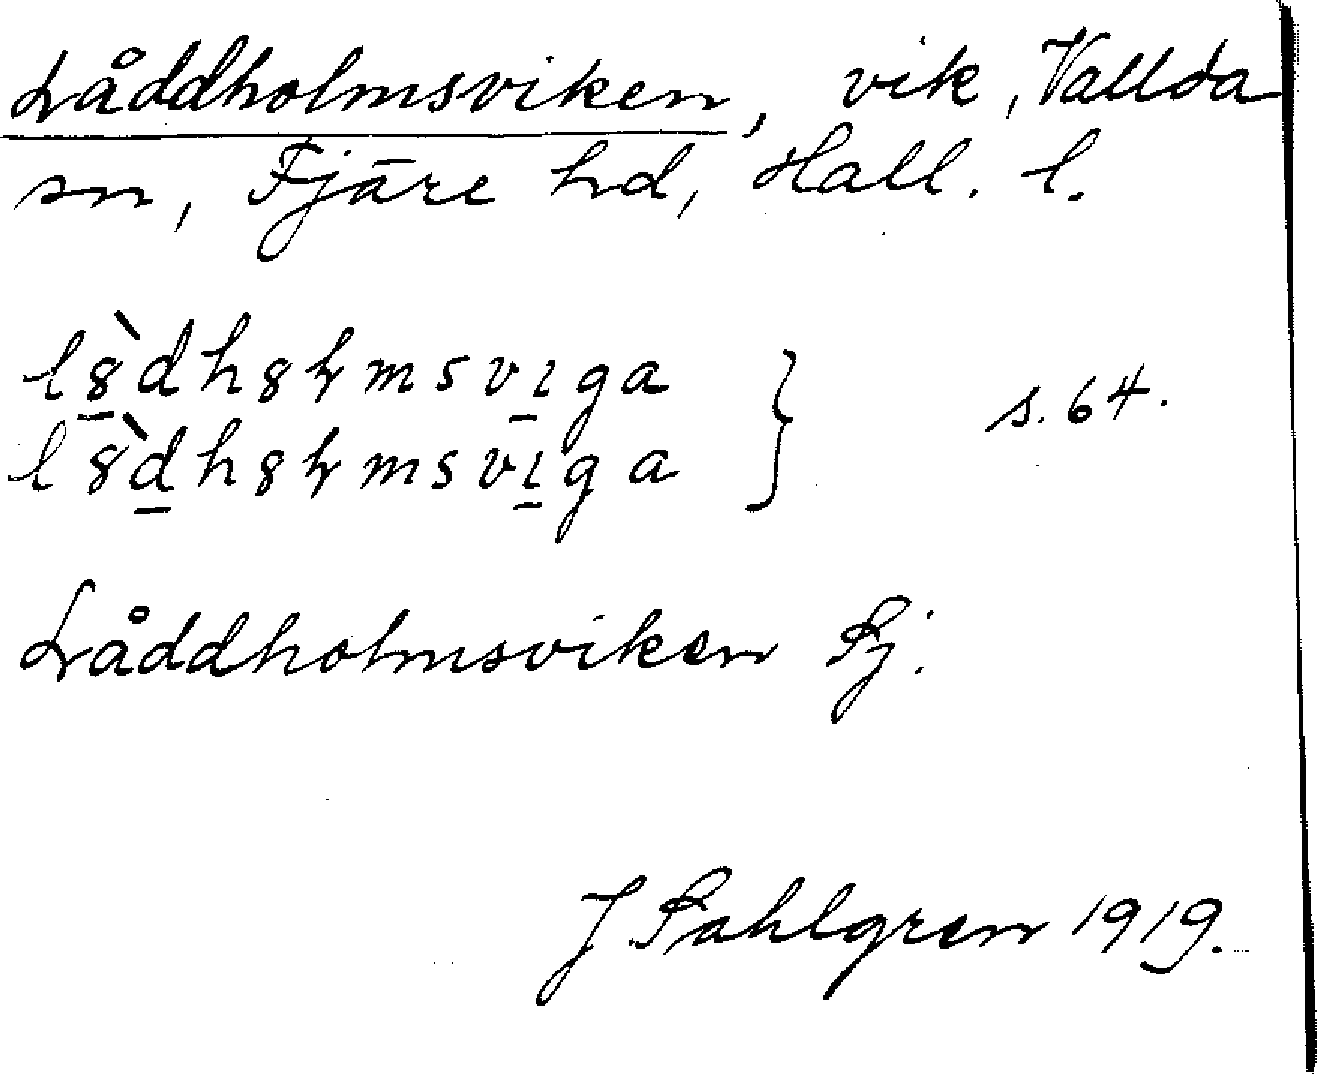 Låddholmsviken, vik, Vallda
sn, Fjäre hd, Hall. l.
l8̲̀dh8ɫmsvı̲ga
l8̀d̲h8ɫmsvı̲ga } s. 64.
Låddholmsviken Sj.
J Sahlgren 1919.